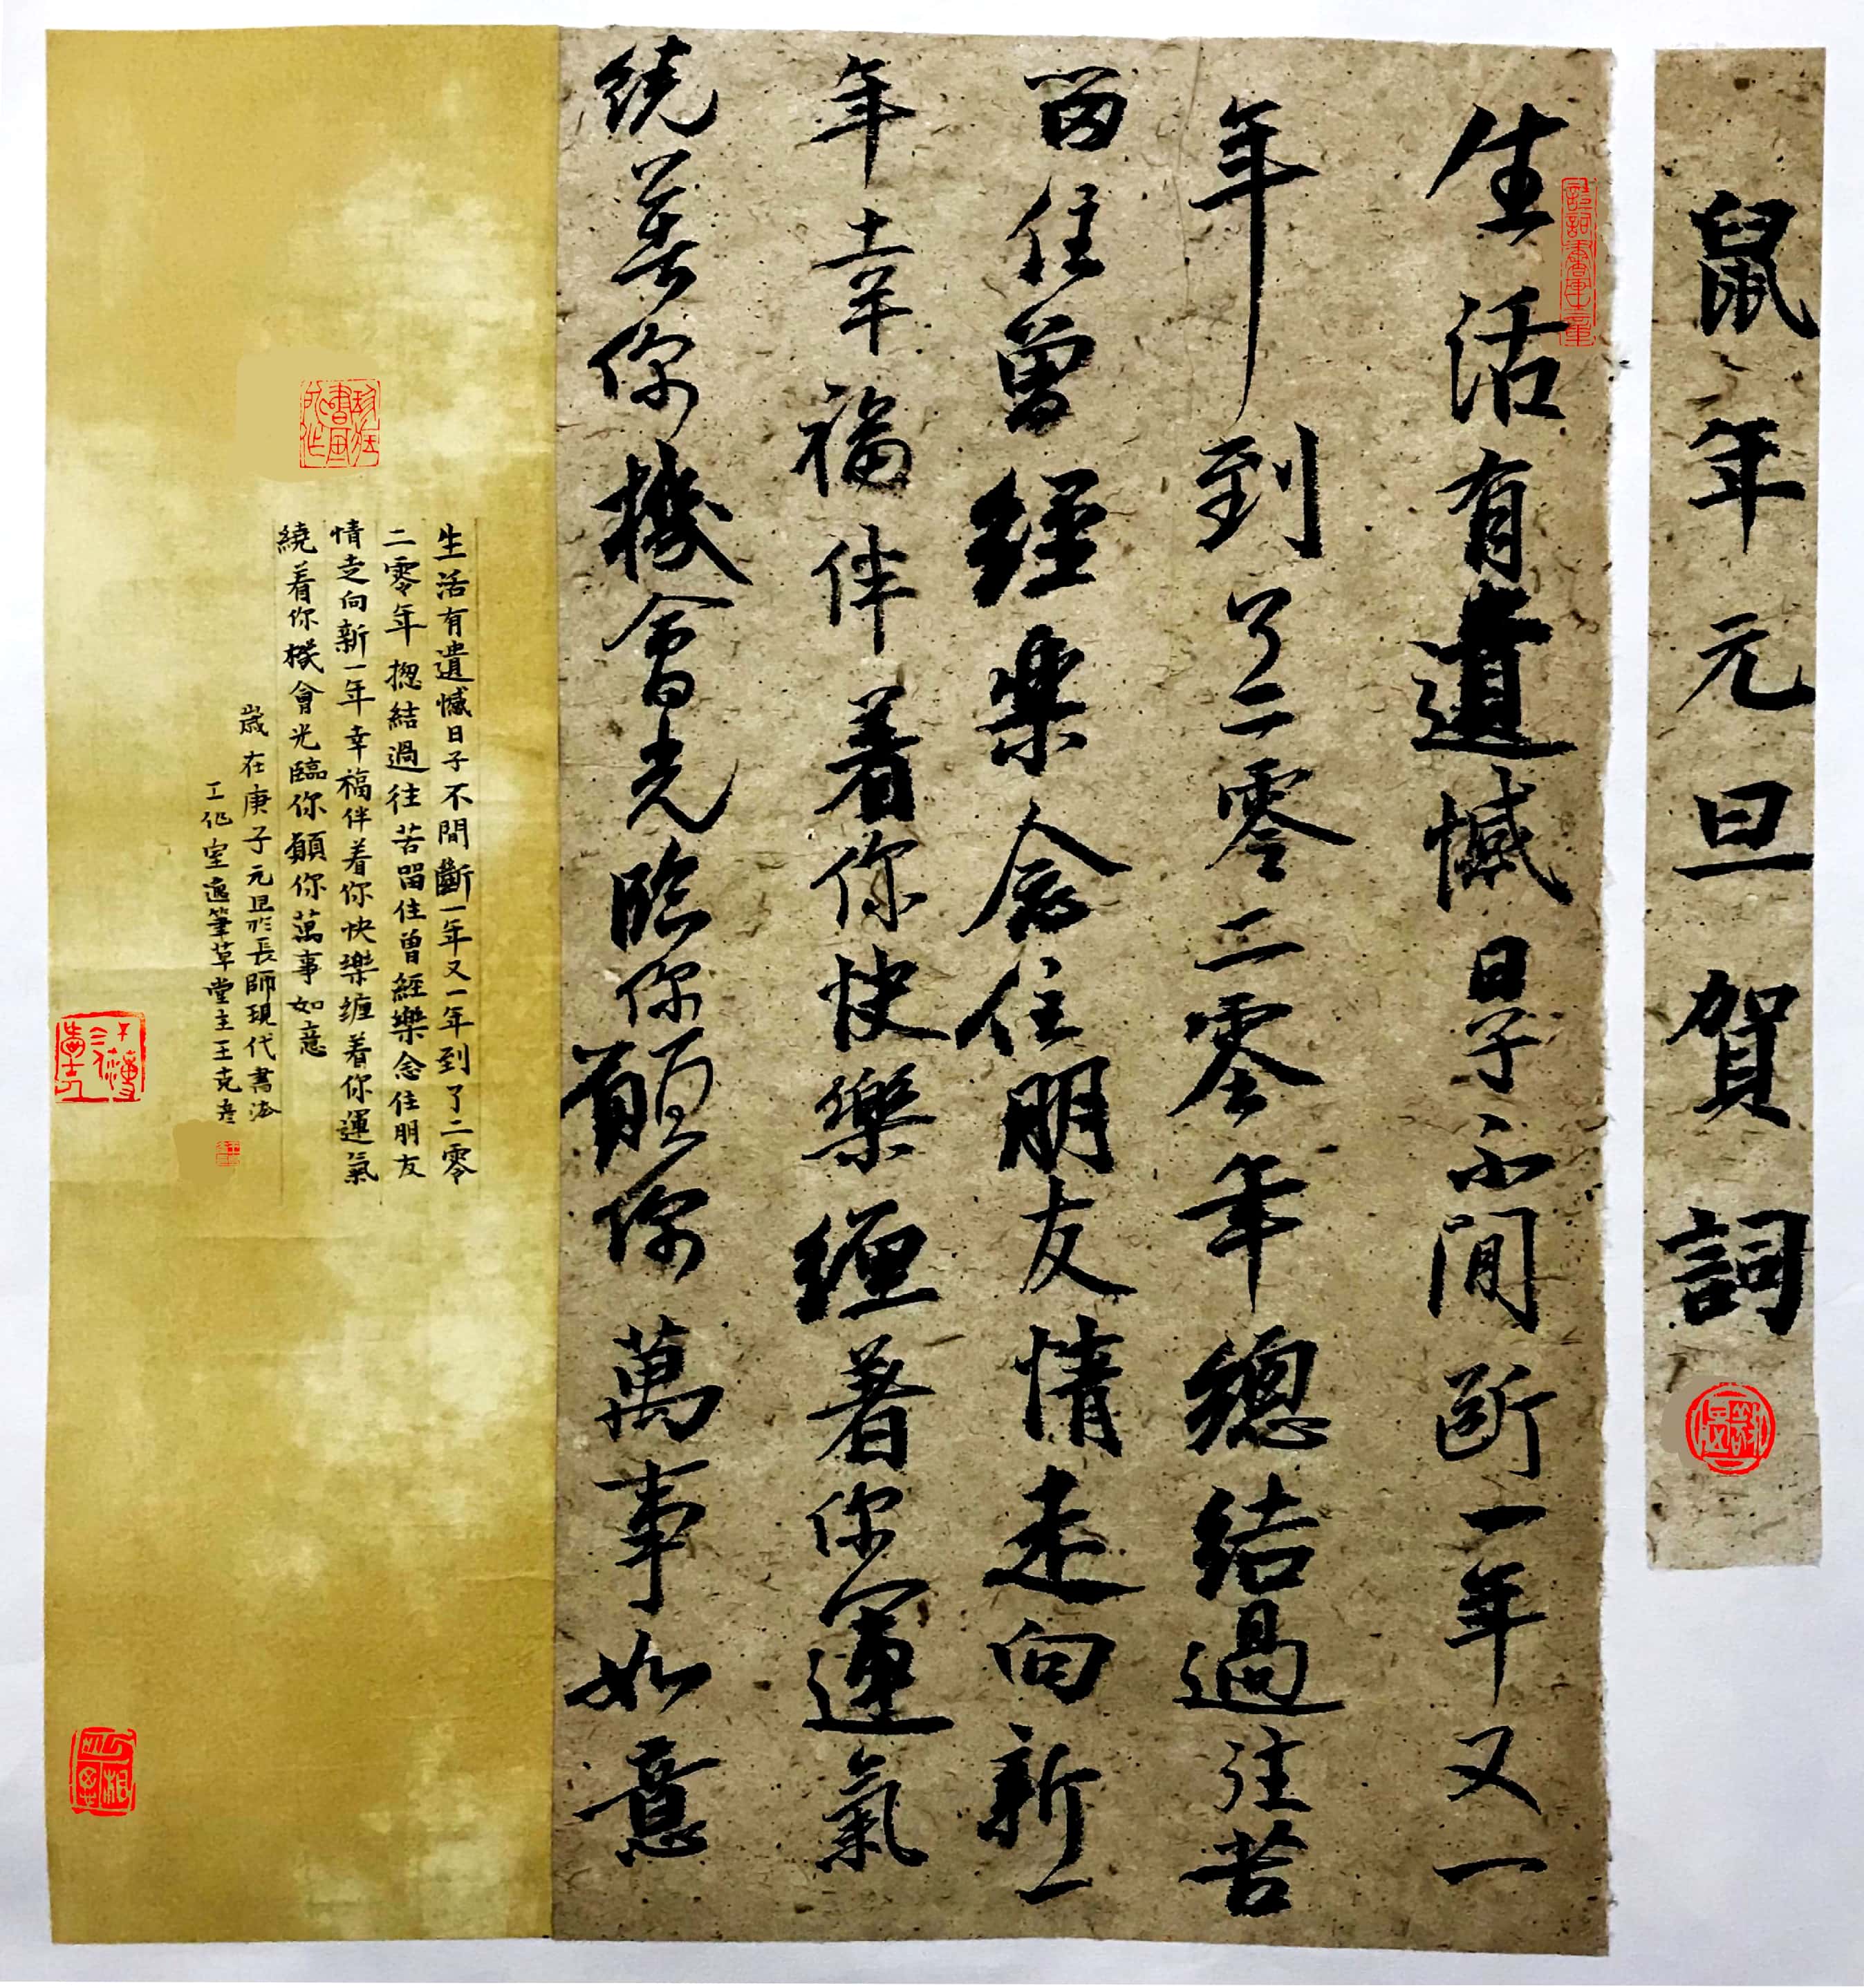 鼠年元旦賀詞
生活有遺憾日子不間断一年又一
年到了二零二零年總結過往苦
留住曾經樂念住朋友情走向新一
年幸福伴着你快樂缠着你運氣
绕着你機會光临你願你萬事如意
生活有遺憾日子不間斷一年又一年到了二零
二零年揔結過往苦留住曾經樂念住朋友
情走向新一年幸福伴着你快樂缠着你運氣
繞着你機會光臨你願你萬事如意
歲在庚子元旦於長師現代書法
工作室逸筆草堂主王克彦